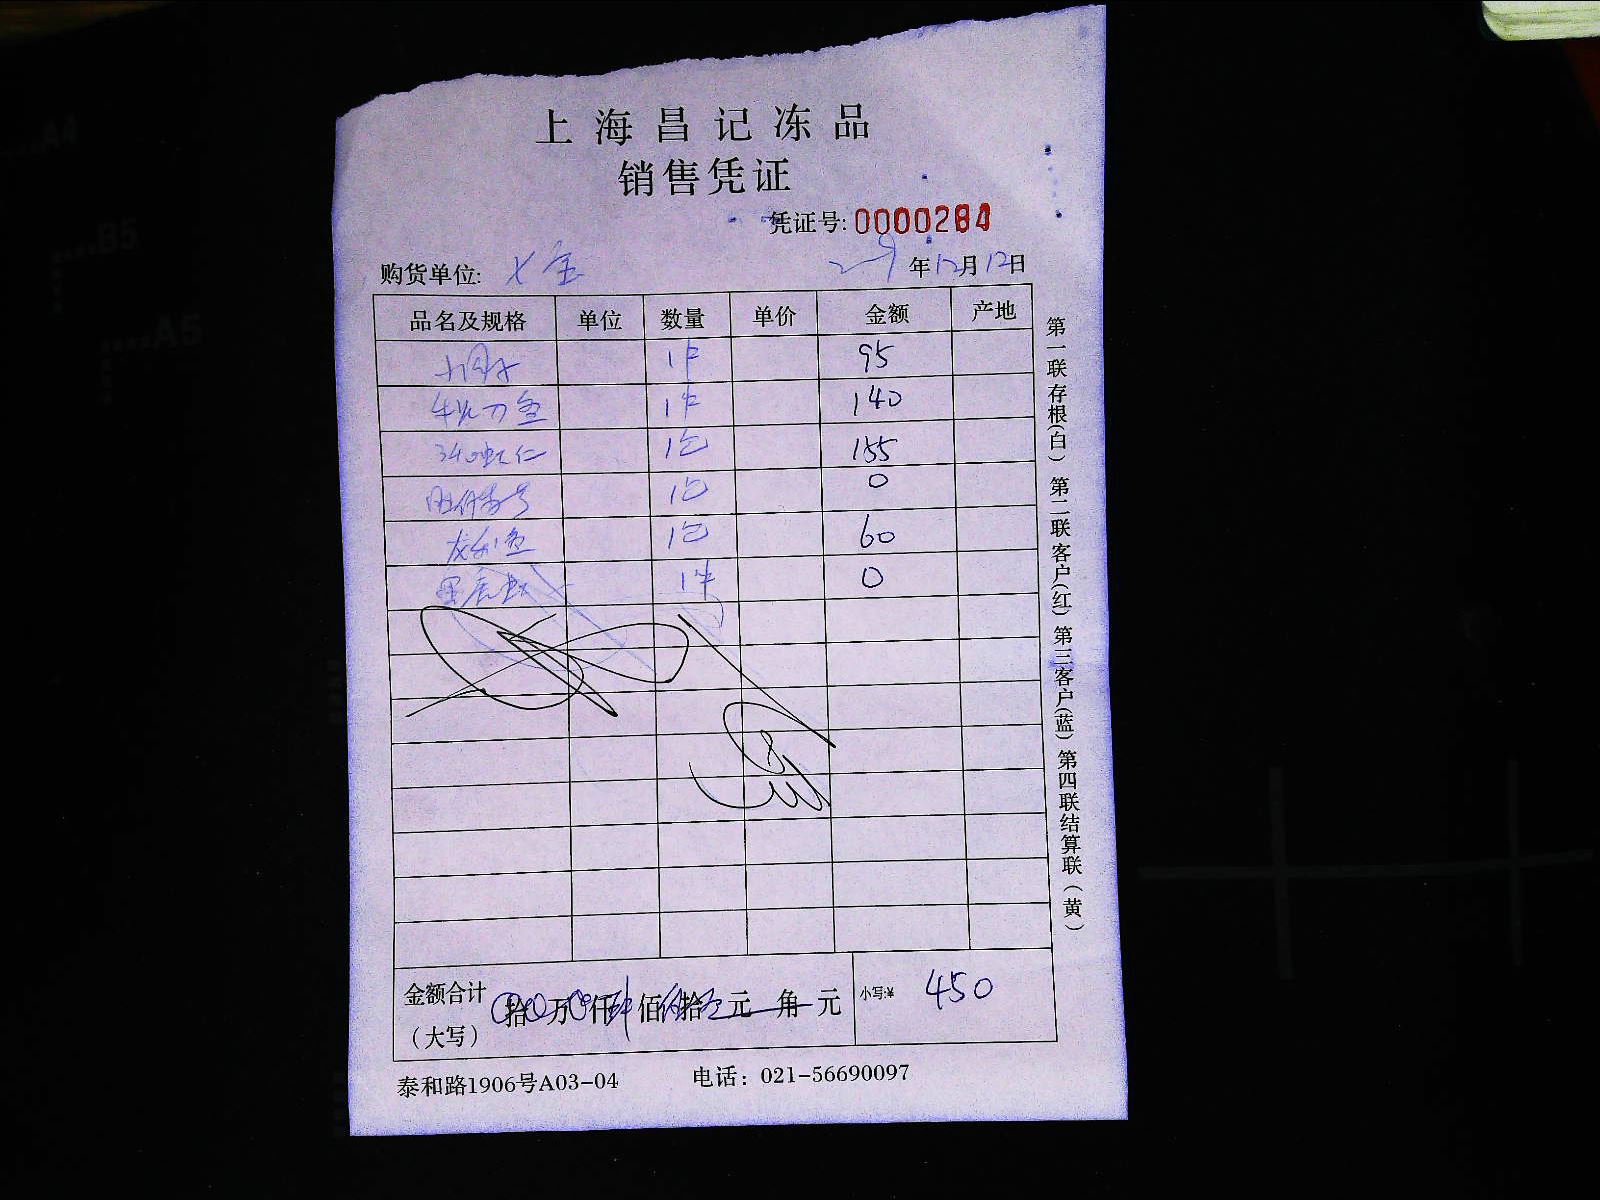 上海昌记冻品
销售凭证
凭证号: 0000284
购货单位: 年12月12日
品名及规格 单位 数量 单价 金额 产地
1件 95
1件 140
虾仁 1包 155
1包 0
龙利鱼 1包 60
1件 0
金额合计（大写） 拾 万 仟 佰 拾 元 角 元 小写:¥ 450
泰和路1906号A03-04 电话：021-56690097
第一联存根(白) 第二联客户(红) 第三客户(蓝) 第四联结算联(黄)
A4
B5
A5